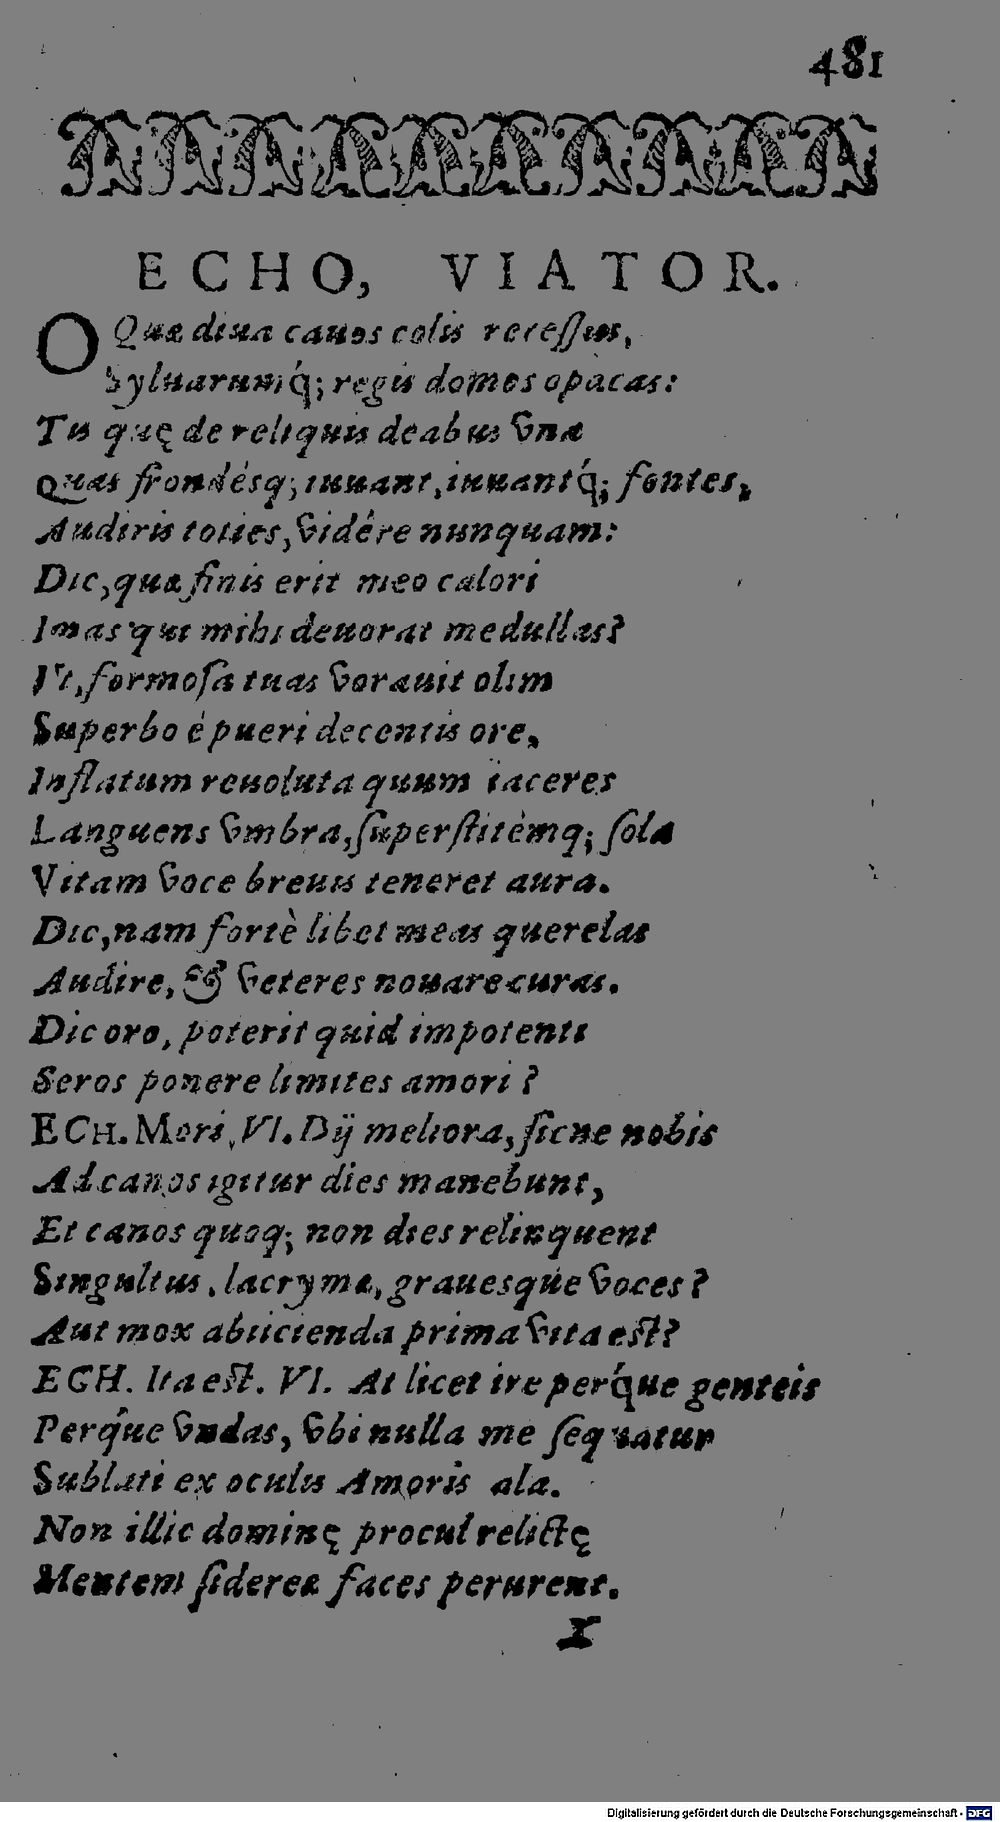 481
ECHO, VIATOR.
O Quæ diua cauos colis recessus,
Syluarumq́; regis domos opàcas:
Tu quę de reliquis deabus vna
Quas frondésq; iuuant, iuuantq́; fontes,
Audiris toties, vidére nunquam:
Dic, quæ finis erit meo calori
Imas qui mihi deuorat medullas?
Vt, formosa tuas vorauit olim
Superbo é pueri decentis ore,
Inflatum reuoluta quum iaceres
Languens vmbra, superstitèmq; sola
Vitam voce breuis teneret aura.
Dic, nam fortè libet meas querelas
Audire, & veteres nouare curas.
Dic oro, poterit quid impotenti
Seros ponere limites amori?
ECH. Mori. VI. Dij meliora, sicne nobis
Ad canos igitur dies manebunt,
Et canos quoq; non dies relinquent
Singultus, lacrymæ, grauesque voces?
Aut mox abiicienda prima vita est?
ECH. Ita est. VI. At licet ire perq́ue genteis
Perq́ue vndas, vbi nulla me sequatur
Sublati ex oculis Amoris ala.
Non illic dominę procul relictę
Mentem sidereæ faces perurent.
I
Digitalisierung gefördert durch die Deutsche Forschungsgemeinschaft - DFG